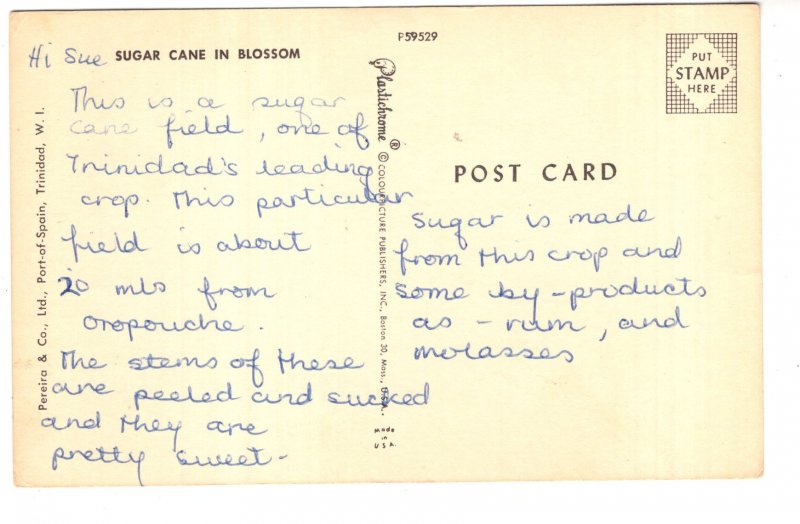 P59529
Hi Sue SUGAR CANE IN BLOSSOM
This is a sugar
cane field, one of
Trinidad's leading
crop. This particular
field is about
20 mls from
Oropouche.
The stems of these
are peeled and sucked
and they are
pretty sweet-
Pereira & Co., Ltd., Port-of-Spain, Trinidad, W. I.
Plastichrome ® © COLOURPICTURE PUBLISHERS, INC., Boston 30, Mass., U.S.A.
Made
in
U.S.A.
PUT
STAMP
HERE
POST CARD
Sugar is made
from this crop and
some by-products
as - rum, and
molasses